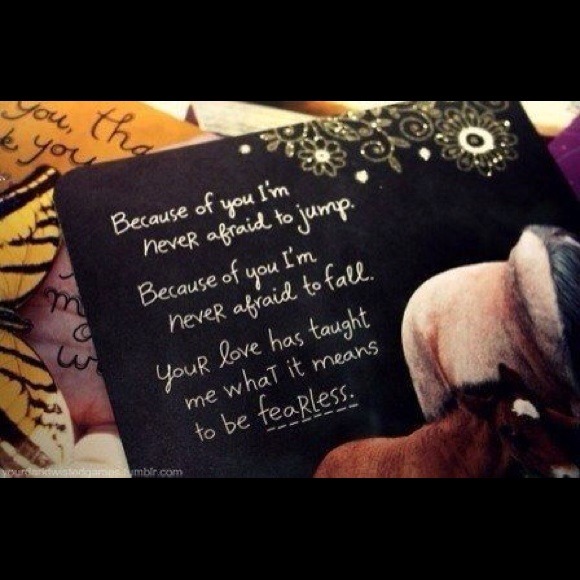 you, tha
k you
Because of you I'm
never afraid to jump.
Because of you I'm
never afraid to fall.
Your love has taught
me what it means
to be fearless.